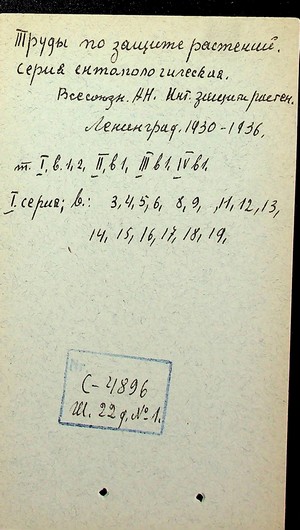 Труды по защите растений.
Серия энтомологическая.
Всесоюзн. АН. Инт. защит. растен.
Ленинград. 1930-1936.
т. I, в. 1, 2, II, в 1, III в 1. IV в 1.
I. серия; в.: 3, 4, 5, 6, 8, 9, , 11, 12, 13,
14, 15, 16, 17, 18, 19,
С-4896
Ш. 22 д. № 1.